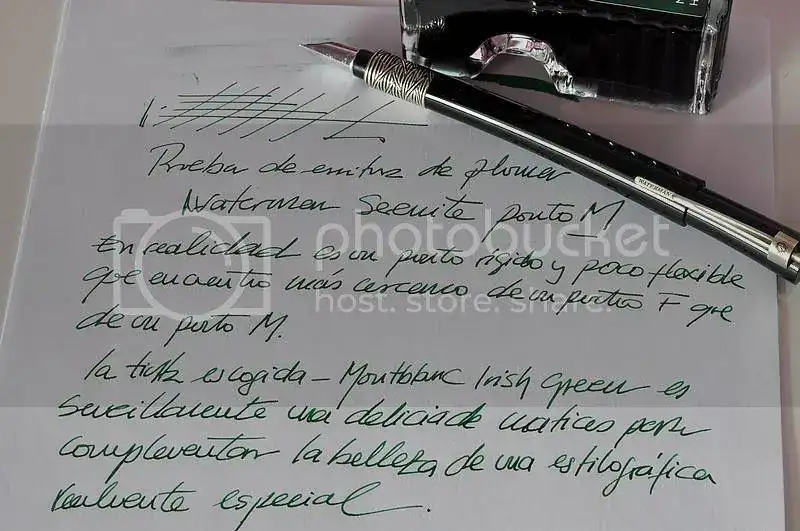 WATERMAN
Prueba de escritura de pluma
Waterman Serenité punto M
En realidad es un punto rígido y poco flexible
que encuentro más cercano de un punto F que
de un punto M.
La tinta escogida - Montblanc Irish Green es
sencillamente una delicia de matices para
complementar la belleza de una estilográfica
realmente especial.
photobucket
host. store. share.